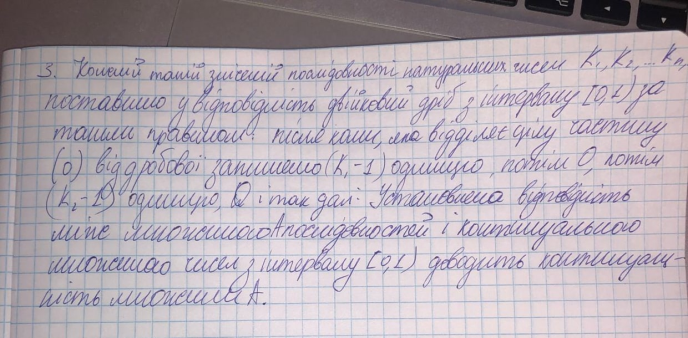 3. Кожній такій зліченій послідовності натуральних чисел K₁, K₂, ... Kₙ,
поставимо у відповідність двійковий дріб з інтервалу [0,1) за
таким правилом: після коми, яка відділяє цілу частину
(0) від дробової запишемо (K₁-1) одиницю, потім 0, потім
(K₂-1) одиницю, 0 і так далі. Установлена відповідність
між множиною A послідовностей і континуальною
множиною чисел з інтервалу [0,1) доводить континуаль-
ність множини A.